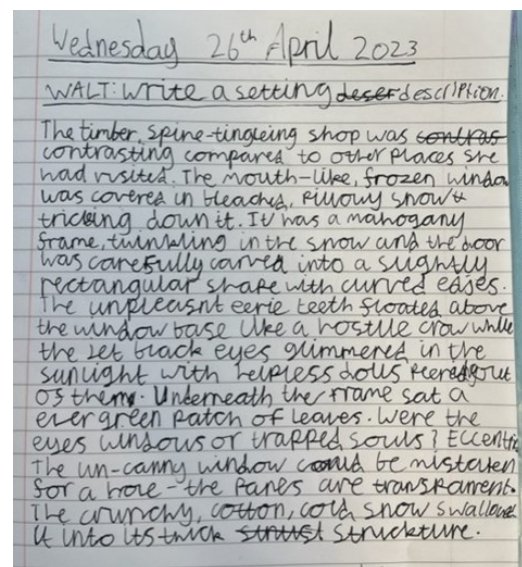 Wednesday 26th April 2023
WALT: Write a setting deser description.
The timber, spine-tingleing shop was contras
contrasting compared to other places she
had visited. The mouth-like, frozen window
was covered in bleached, pillowy snow
tricking down it. It was a mahogany
frame, twinkling in the snow and the door
was carefully carved into a slightly
rectangular shape with curved edges.
The unpleasnt eerie teeth floated above
the window base like a hostile crow while
the jet black eyes glimmered in the
sunlight with helpless dolls peered out
of them. Underneath the frame sat a
ever green patch of leaves. Were the
eyes windows or trapped souls? Eccentric
The un-canny window could be mistaken
for a hole - the panes are transparent.
The crunchy, cotton, cold snow swallowed
it into its thick struct structure.